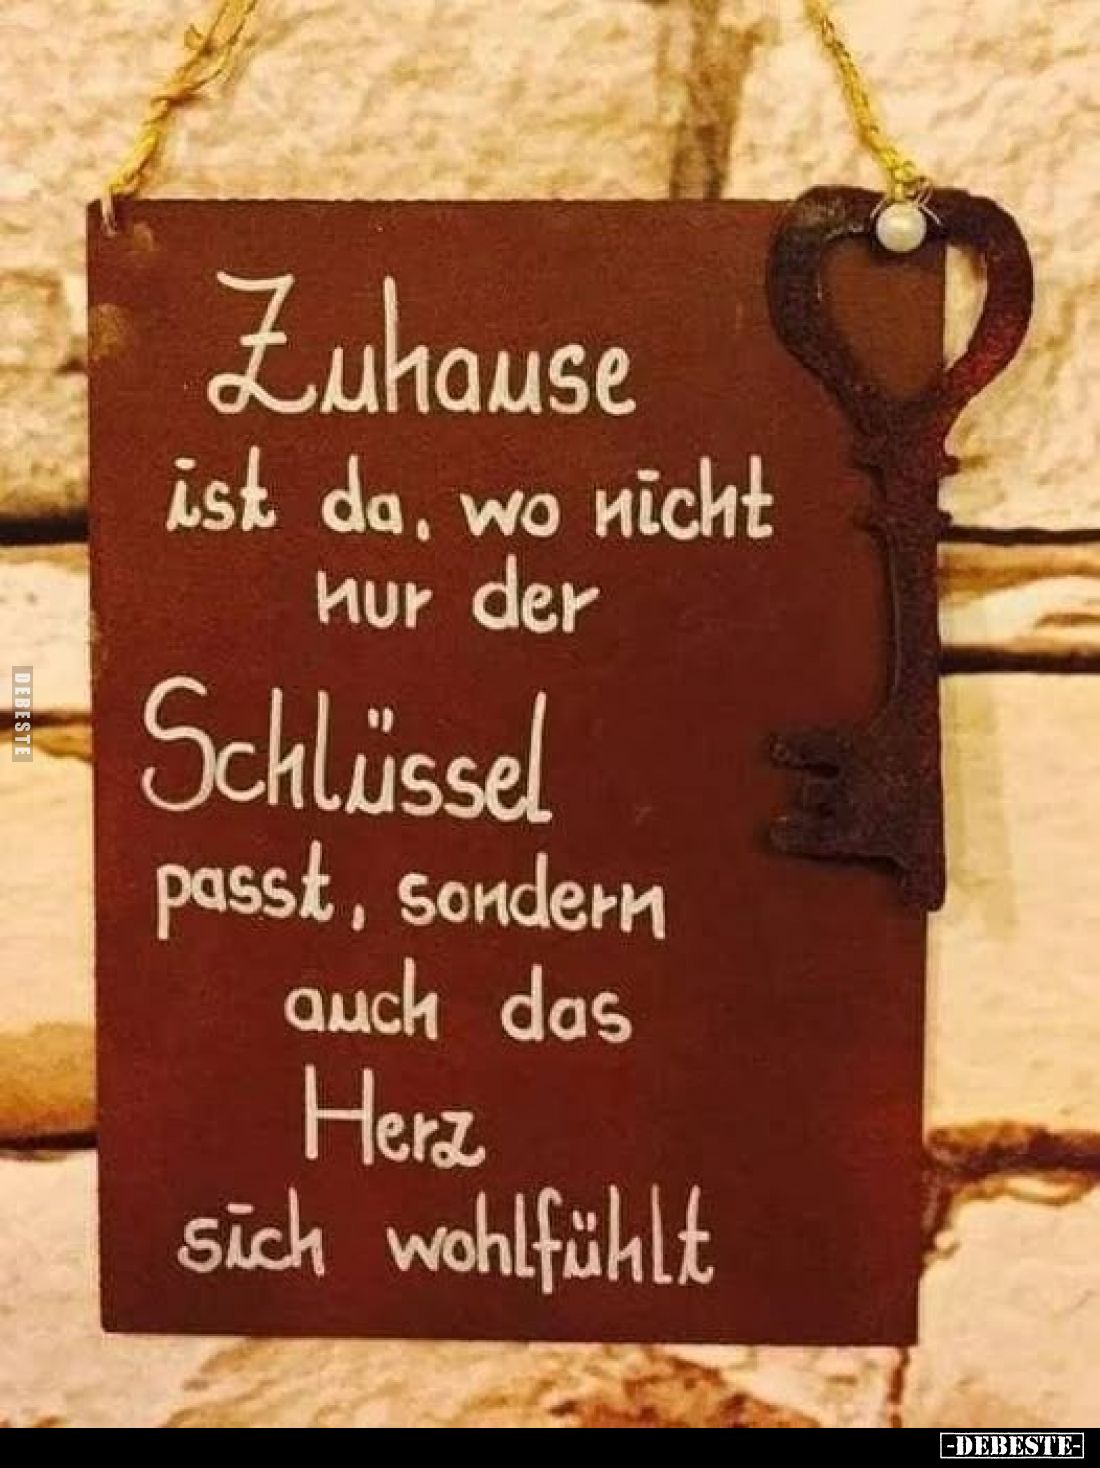 Zuhause
ist da, wo nicht
nur der
Schlüssel
passt, sondern
auch das
Herz
sich wohlfühlt
DEBESTE
-DEBESTE-